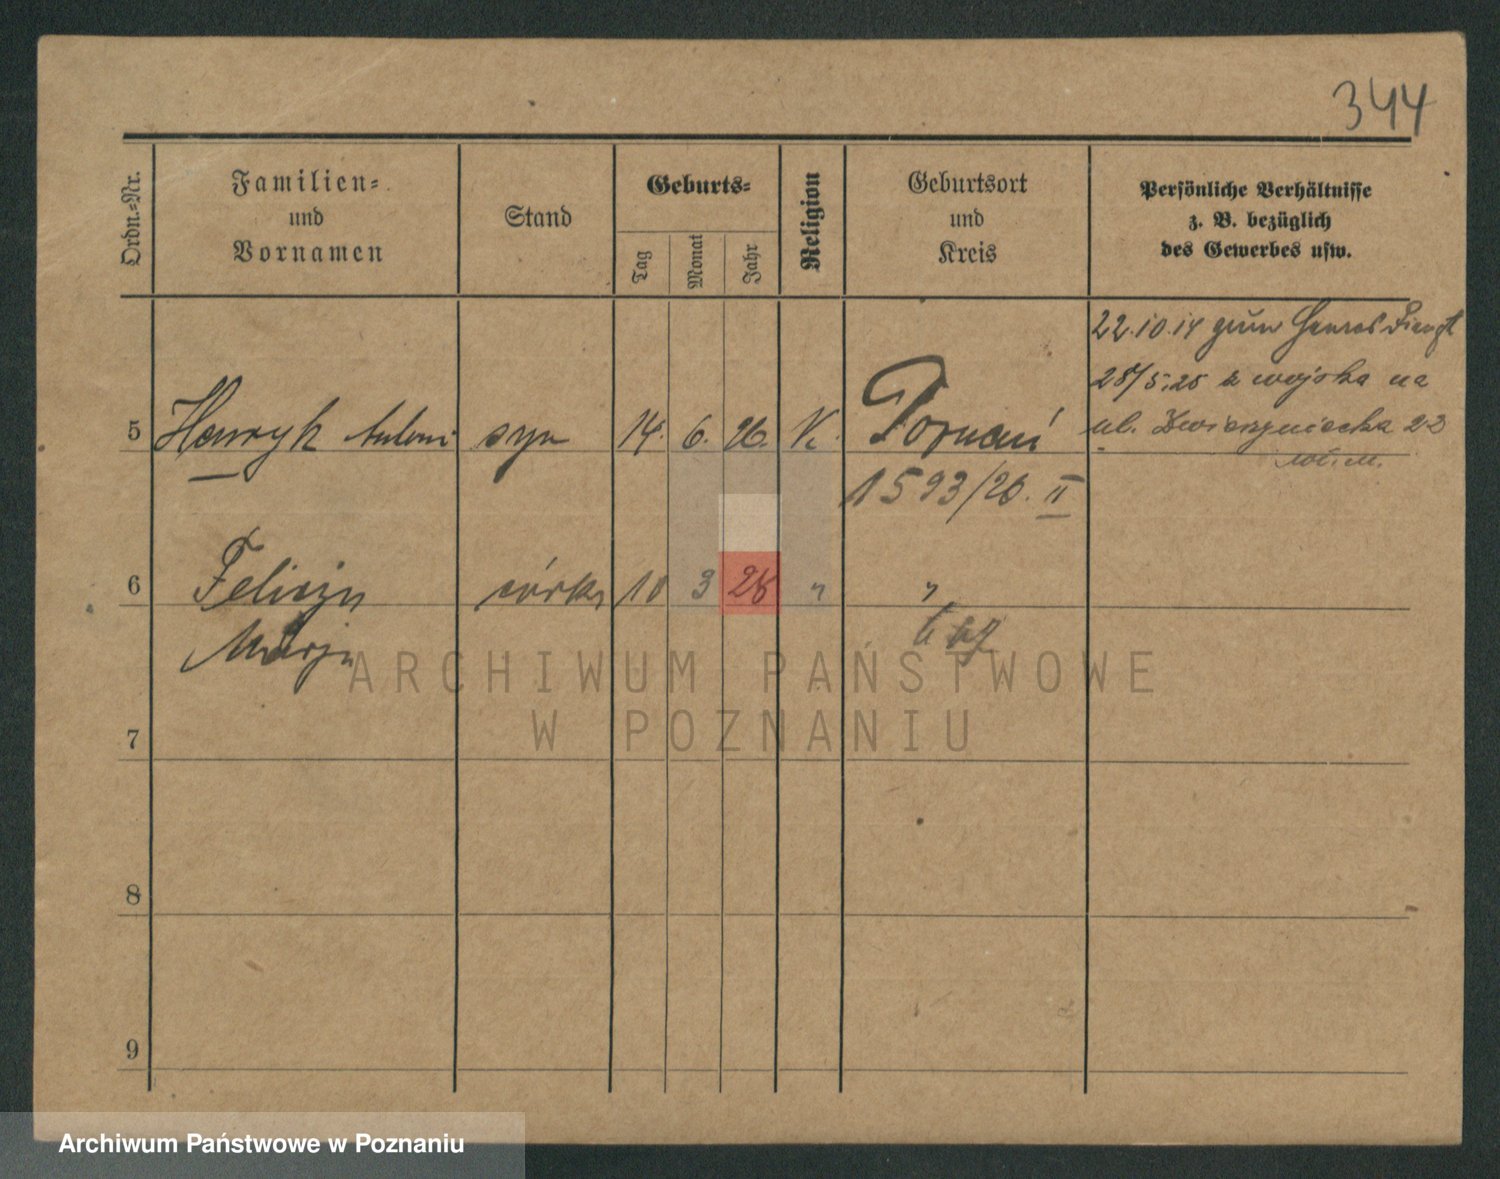 344
Ordn.-Nr.
Familien-
und
Vornamen
Stand
Geburts-
Tag
Monat
Jahr
Religion
Geburtsort
und
Kreis
Persönliche Verhältnisse
z. B. bezüglich
des Gewerbes usw.
22.10.14 zum Heeres Dienst
28/5.25 z wojska na
ul. Zwierzyniecka 22
5 Henryk Antoni syn 14. 6. 26. K. Poznań
1593/26. II
6 Felicja córka 10 3 28 " "
Marja 667
ARCHIWUM PAŃSTWOWE
W POZNANIU
7
8
9
Archiwum Państwowe w Poznaniu